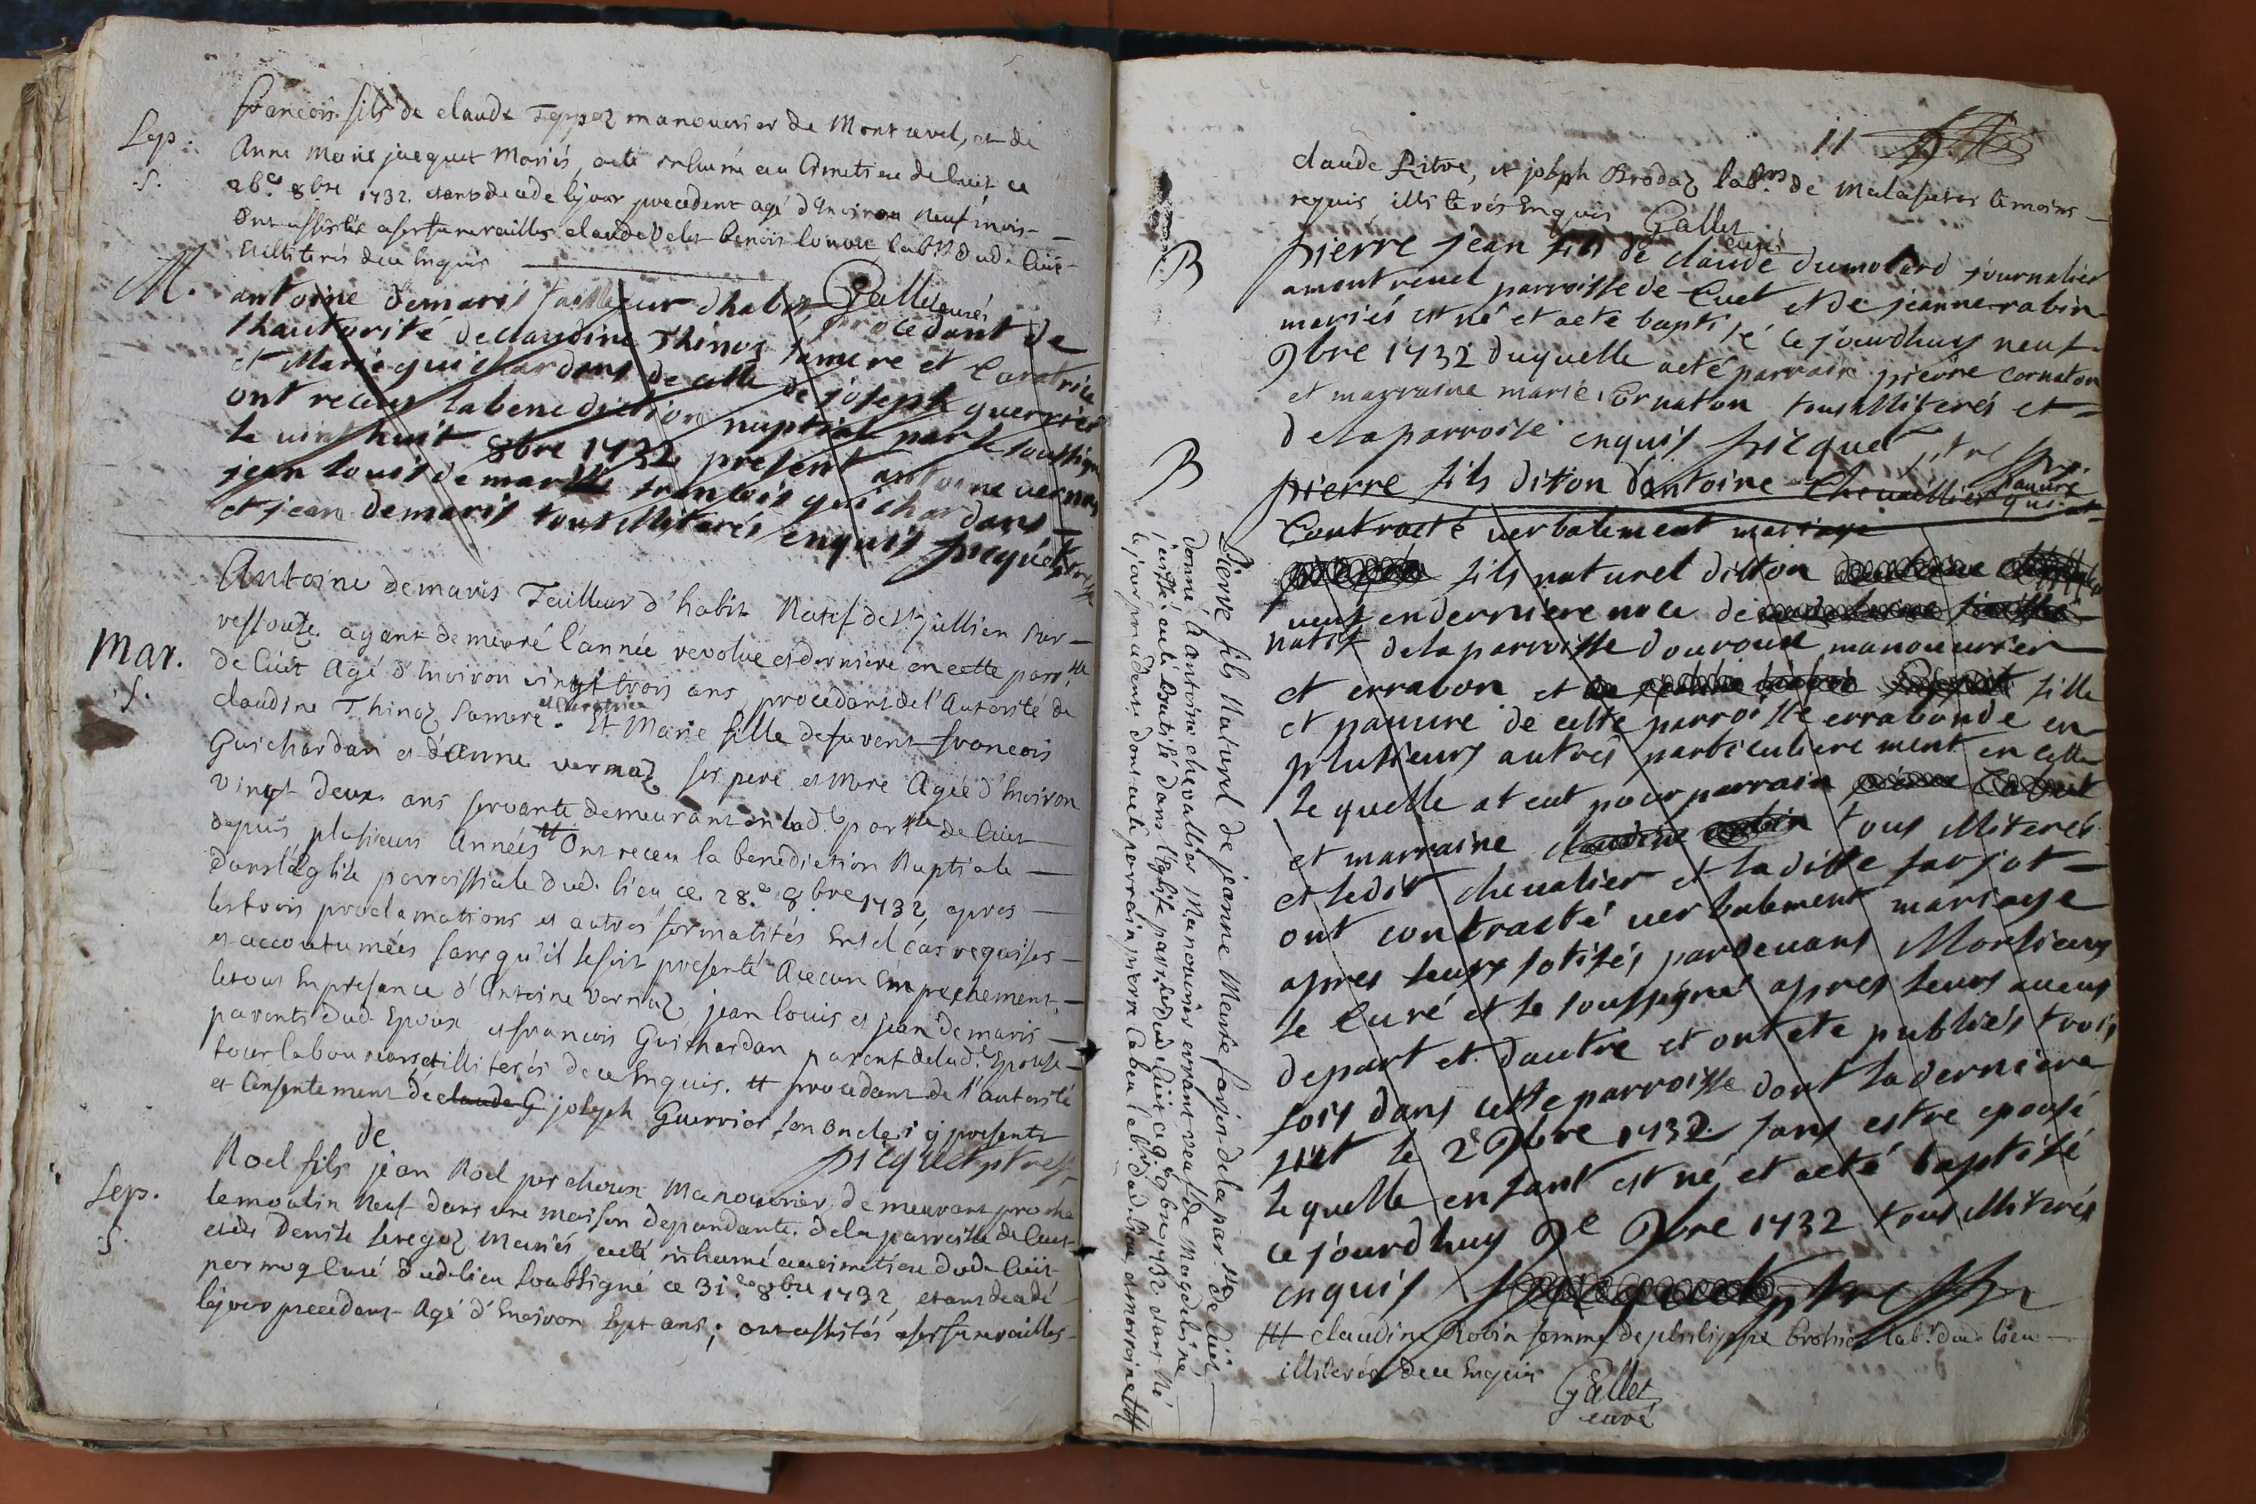 Sep.
S.
francois fils de claude Teppoz manouvrier de Montrevel, et de
Anne Marie jacquet Mariés, acté inhumé au Cimetiere de Cuet ce
26e 8bre 1732. etant decede le jour precedent agé d'Environ neuf mois
Ont assistés a ses funerailles claude Velet benoit louvat labrs dud. Cuet
illiterés de ce Enquis Gallet curé
M.
antoine demaris tailleur dhabit, procedant de
lhautorité de claudine Thinoz samere et Curatrice
et Marie guichardans de celle de joseph guerrier
ont receus la benediction nuptial par le soussigné
le vint huit 8bre 1732 present antoine vernaz
jean louis demaris francois guichardans
et jean demaris tous illiterés enquis picquet ptre
Mar.
S.
Antoine demaris Tailleur d'habit Natif de St jullien sur
ressouze ayant demeuré l'année revolue et derniere en cette parrsse
de Cuet Agé d'Environ vingt trois ans, procedant de l'Autorité de
claudine Thinoz Samere et Curatrice. Et Marie fille de fuvent francois
Guichardan et d'anne vernaz ses pere et Mere Agée d'Environ
vingt deux ans servante demeurant en lad. parsse de Cuet
depuis plusieurs Années # Ont receu la benediction Nuptiale
dans l'église parroissiale dud. lieu ce 28.e 8bre 1732, apres
les trois proclamations et autres formalités En tel cas requises
et accoutumées sans qu'il se soit presenté Aucun Empechement,
le tout En presence d'Antoine Vernaz, jean louis et jean demaris
parents dud. Epoux et francois Guichardan parent de lad. Epouse
tous laboureurs et illiterés de ce Enquis. # procedant de l'autorité
et Consentement de claude G joseph Guerrier son oncle i cy present
picquet ptre
Sep.
S.
Noel fils de jean Noel perchoux Manouvrier demeurant proche
le moulin Neuf dans une maison dependante de la parroisse de Cuet
et de Denise Mariés, acté inhumé au cimetiere dud. Cuet
par moy Curé dud. lieu soubsigné ce 31.e 8bre 1732, etant decedé
le jour precedent Agé d'Environ sept ans; ont assistés a ses funerailles
11
claude Pitre, et joseph Brodaz labrs de Malafretas temoins
requis illiterés Enquis Gallet curé
B
pierre jean fils de claude dumolard journalier
a montrevel parroisse de Cuet et de jeanne rabin
mariés est né et acté baptisé ce jourdhuy neuf
9bre 1732 duquelle acté parrain pierre cornaton
et marraine marie Cornaton tous illiterés et
de la parroisse enquis picquet ptre
B
pierre fils ditton dantoine Chevallier pauvre qui at
Contracté verbalement mariage
fils naturel ditton
veuf en derniere noce de
natif de la parroisse douroux manouvrier
et errabon et fille
et pauvre de cette parroisse errabonde en
plusieurs autres particulierement en cette
le quelle at eut pour parrain
et marraine tous illiterés
et ledit chevalier et la ditte farjot
ont contracté verbalement mariage
apres leurs sotisés pardevant Monsieur
le Curé et le soussigné apres leurs aveus
depart et dautre et ont ete publiés trois
fois dans cette parroisse dont la derniere
fut le 2e 9bre 1732 sans estre epousé
le quelle enfant est né et acté baptisé
ce jourdhuy 9e 9bre 1732 tous illiterés
enquis picquet ptre
Pierre fils Naturel de jeanne Marie farjot de la parsse de Cuet
donné a Antoine chevallier Manouvrier errant veuf de Magdelaine
, acté Baptisé dans l'Eglise parrsse dud. Cuet ce 9.e 9bre 1732 etant Né
le jour precedent, dont acté parrain pierre Cabeu labr dud. lieu et marraine ###
### claudine Robin femme de philippe brohier labr dud. lieu
illiterés de ce Enquis
Gallet
curé